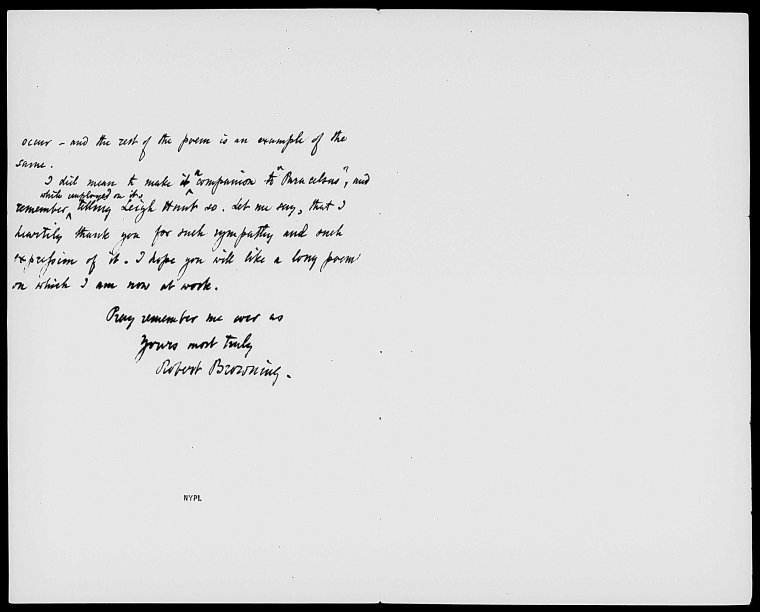 occur – and the rest of the poem is an example of the
same.
I did mean to make it a companion to "Paracelsus", and
while employed on it,
remember telling Leigh Hunt so. Let me say, that I
heartily thank you for such sympathy and such
expression of it. I hope you will like a long poem
on which I am now at work.
Pray remember me ever as
Yours most truly
Robert Browning.
NYPL